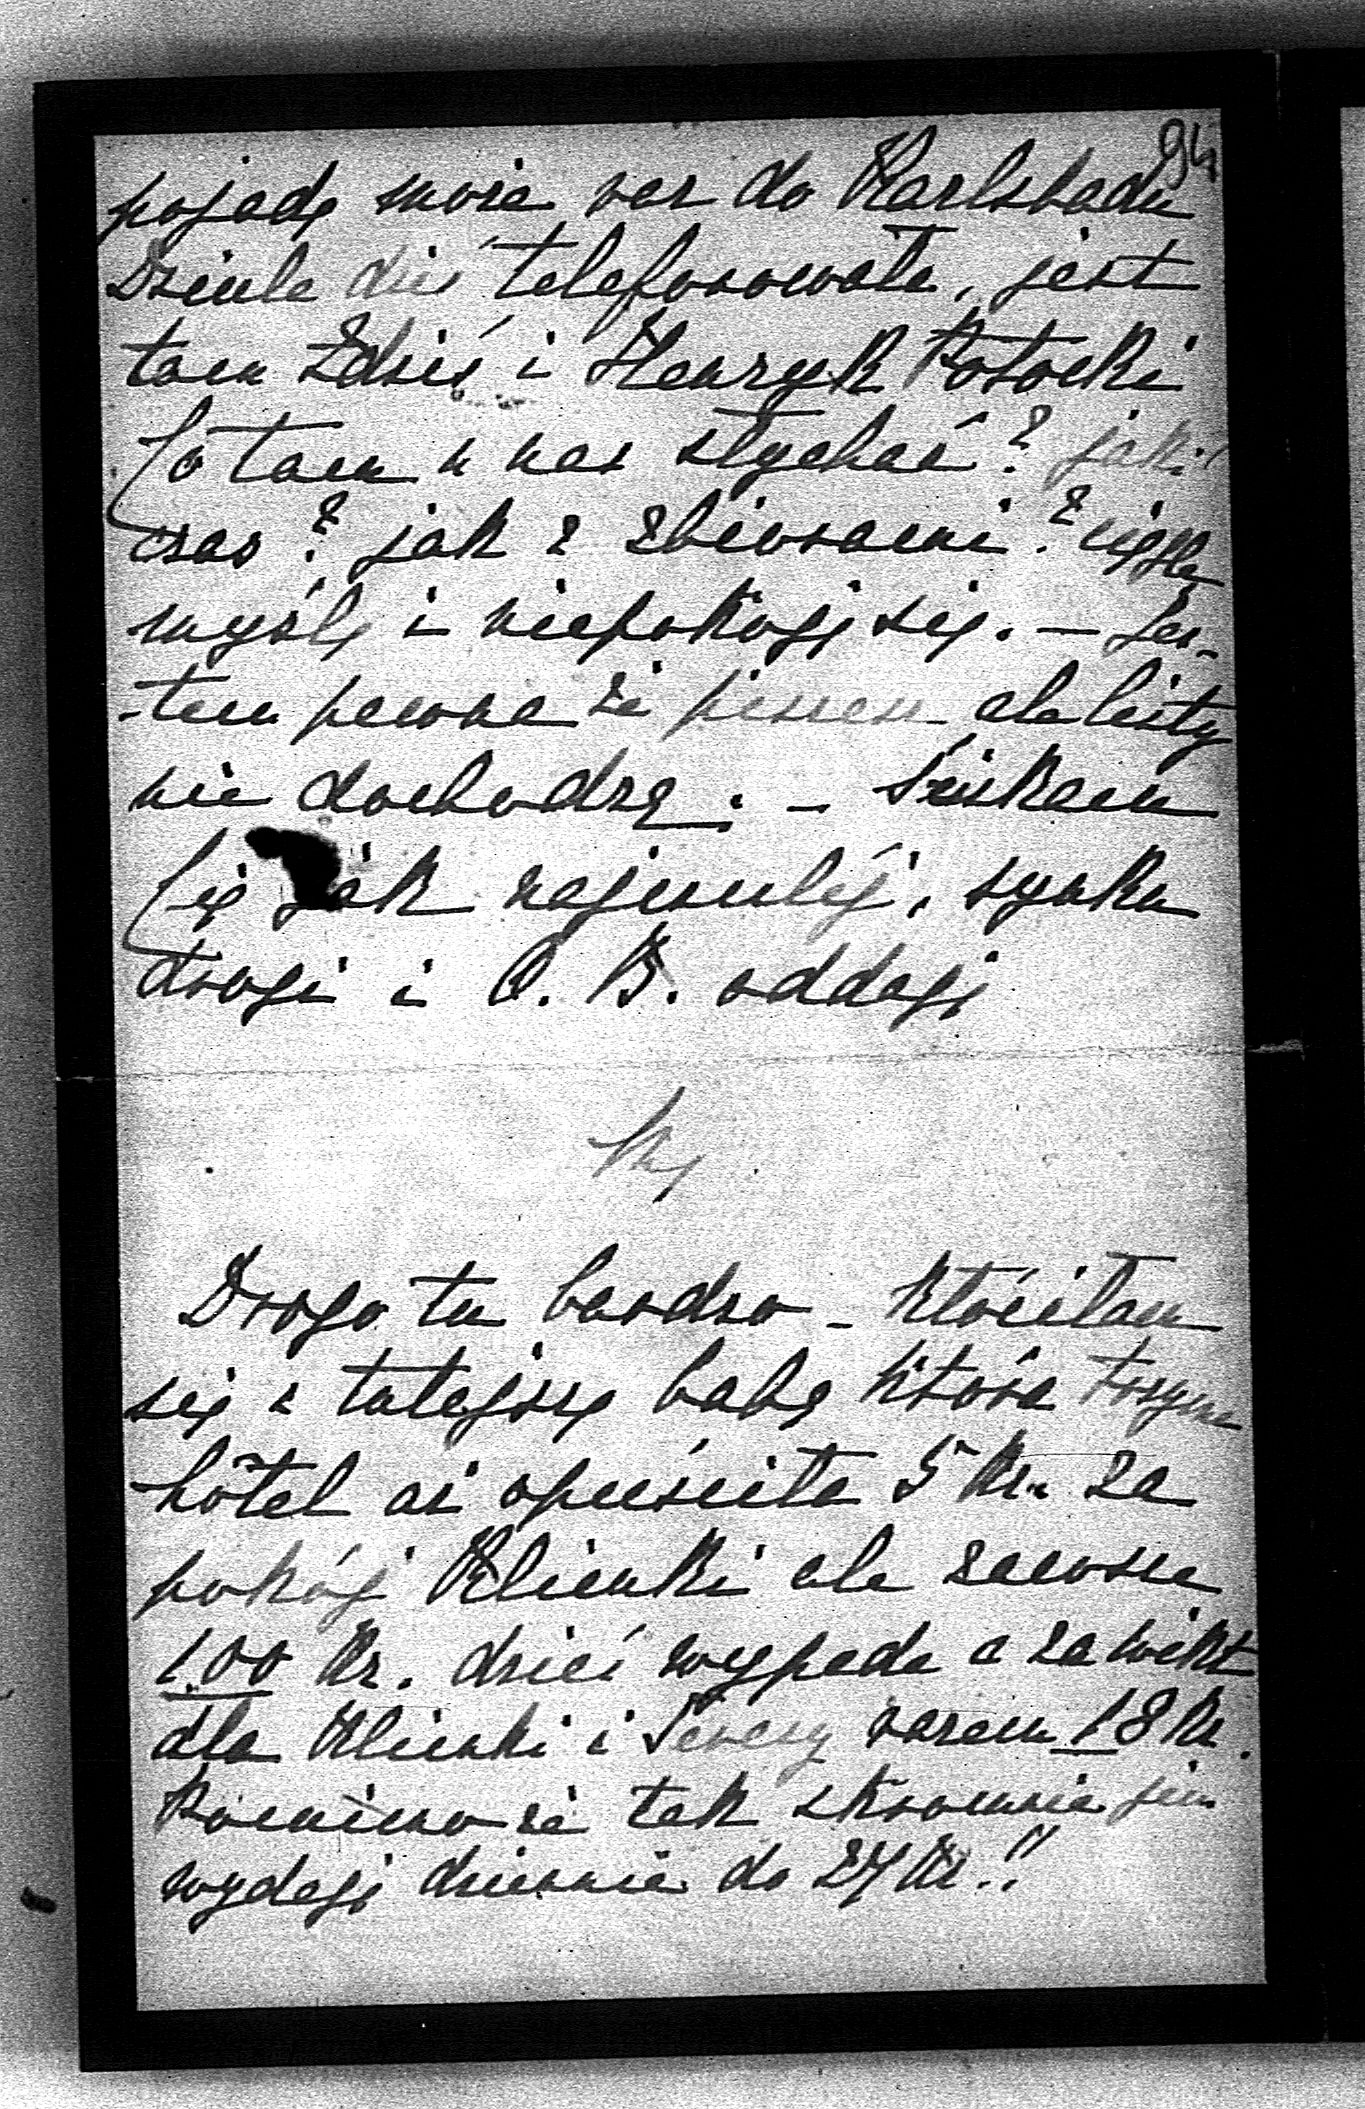 94
pojadę może raz do Karlsbadu
Dziule dziś telefonowała, jest
tam Zdziś i Henryk Potocki
Co tam u nas słychać? jaki
czas? jak z zbiorami? ciągle
myślę i niepokoję się. — Jes-
-tem pewna że piszesz ale listy
nie dochodzą. — Ściskam
Cię jak najczuléj, synku
drogi i O. B. oddaję
Drogo tu bardzo — kłóciłam
się z tutejszą babą która trzyma
hôtel aż opuściła 5 Kr. za
pokój Klimki ale zawsze
100 Kr. dzień wypada a za wikt
dla Klimki i razem 18 Kr.
Pomimo że tak skromnie jem
wydaję dziennie do 24 Kr.!!